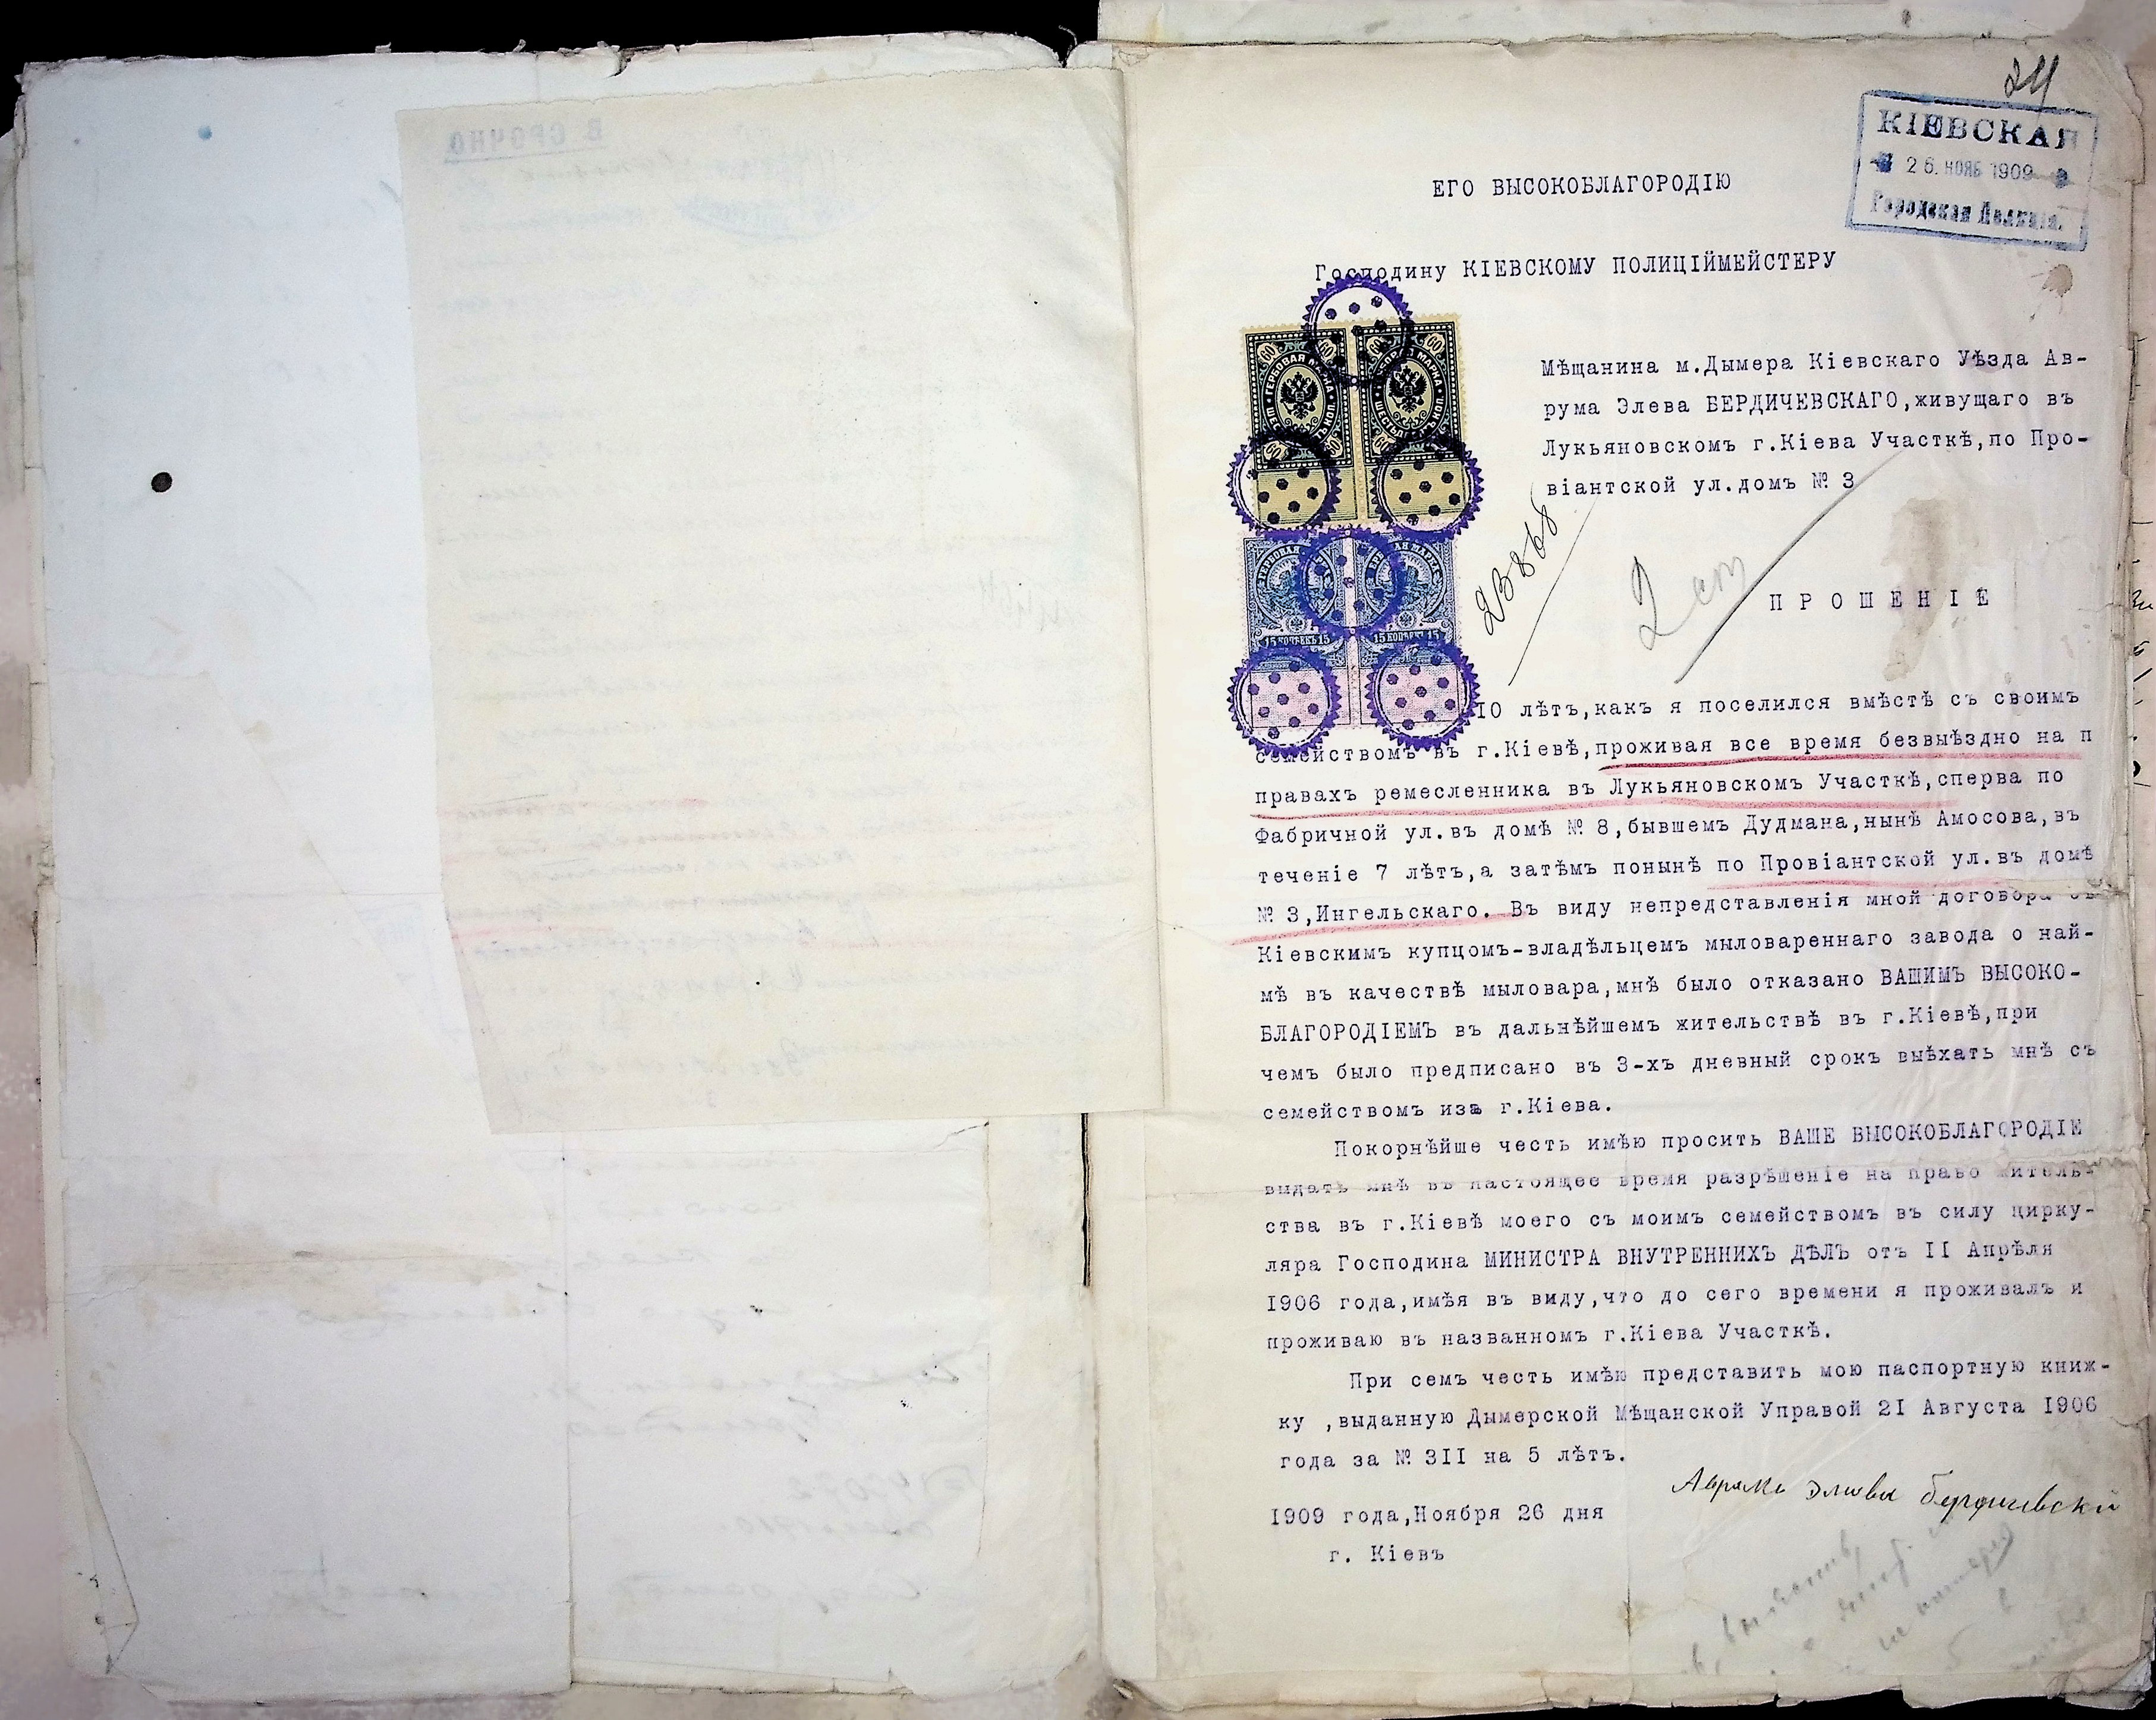 24
КІЕВСКАЯ
26. НОЯБ 1909
Городская Полиція.
ЕГО ВЫСОКОБЛАГОРОДІЮ
Господину КІЕВСКОМУ ПОЛИЦІЙМЕЙСТЕРУ
Мѣщанина м.Дымера Кіевскаго Уѣзда Ав-
рума Элева БЕРДИЧЕВСКАГО,живущаго въ
Лукьяновскомъ г.Кіева Участкѣ,по Про-
віантской ул.домъ № 3
ГЕРБОВАЯ МАРКА
60
15 КОПѢЕКЪ 15
15 КОПѢЕКЪ 15
23868
2 ст
ПРОШЕНІЕ
10 лѣтъ,какъ я поселился вмѣстѣ съ своимъ
семействомъ въ г.Кіевѣ,проживая все время безвыѣздно на п
правахъ ремесленника въ Лукьяновскомъ Участкѣ,сперва по
Фабричной ул.въ домѣ № 8,бывшемъ Дудмана,нынѣ Амосова,въ
теченіе 7 лѣтъ,а затѣмъ понынѣ по Провіантской ул.въ домѣ
№ 3,Ингельскаго. Въ виду непредставленія мной договора съ
Кіевскимъ купцомъ-владѣльцемъ мыловареннаго завода о най-
мѣ въ качествѣ мыловара,мнѣ было отказано ВАШИМЪ ВЫСОКО-
БЛАГОРОДІЕМЪ въ дальнѣйшемъ жительствѣ въ г.Кіевѣ,при
чемъ было предписано въ 3-хъ дневный срокъ выѣхать мнѣ съ
семействомъ изъ г.Кіева.
Покорнѣйше честь имѣю просить ВАШЕ ВЫСОКОБЛАГОРОДІЕ
выдать мнѣ въ настоящее время разрѣшеніе на право житель-
ства въ г.Кіевѣ моего съ моимъ семействомъ въ силу цирку-
ляра Господина МИНИСТРА ВНУТРЕННИХЪ ДѢЛЪ отъ II Апрѣля
I906 года,имѣя въ виду,что до сего времени я проживалъ и
проживаю въ названномъ г.Кіева Участкѣ.
При семъ честь имѣю представить мою паспортную книж-
ку ,выданную Дымерской Мѣщанской Управой 2I Августа I906
года за № 3II на 5 лѣтъ.
Бердичевскій
I909 года,Ноября 26 дня
г. Кіевъ